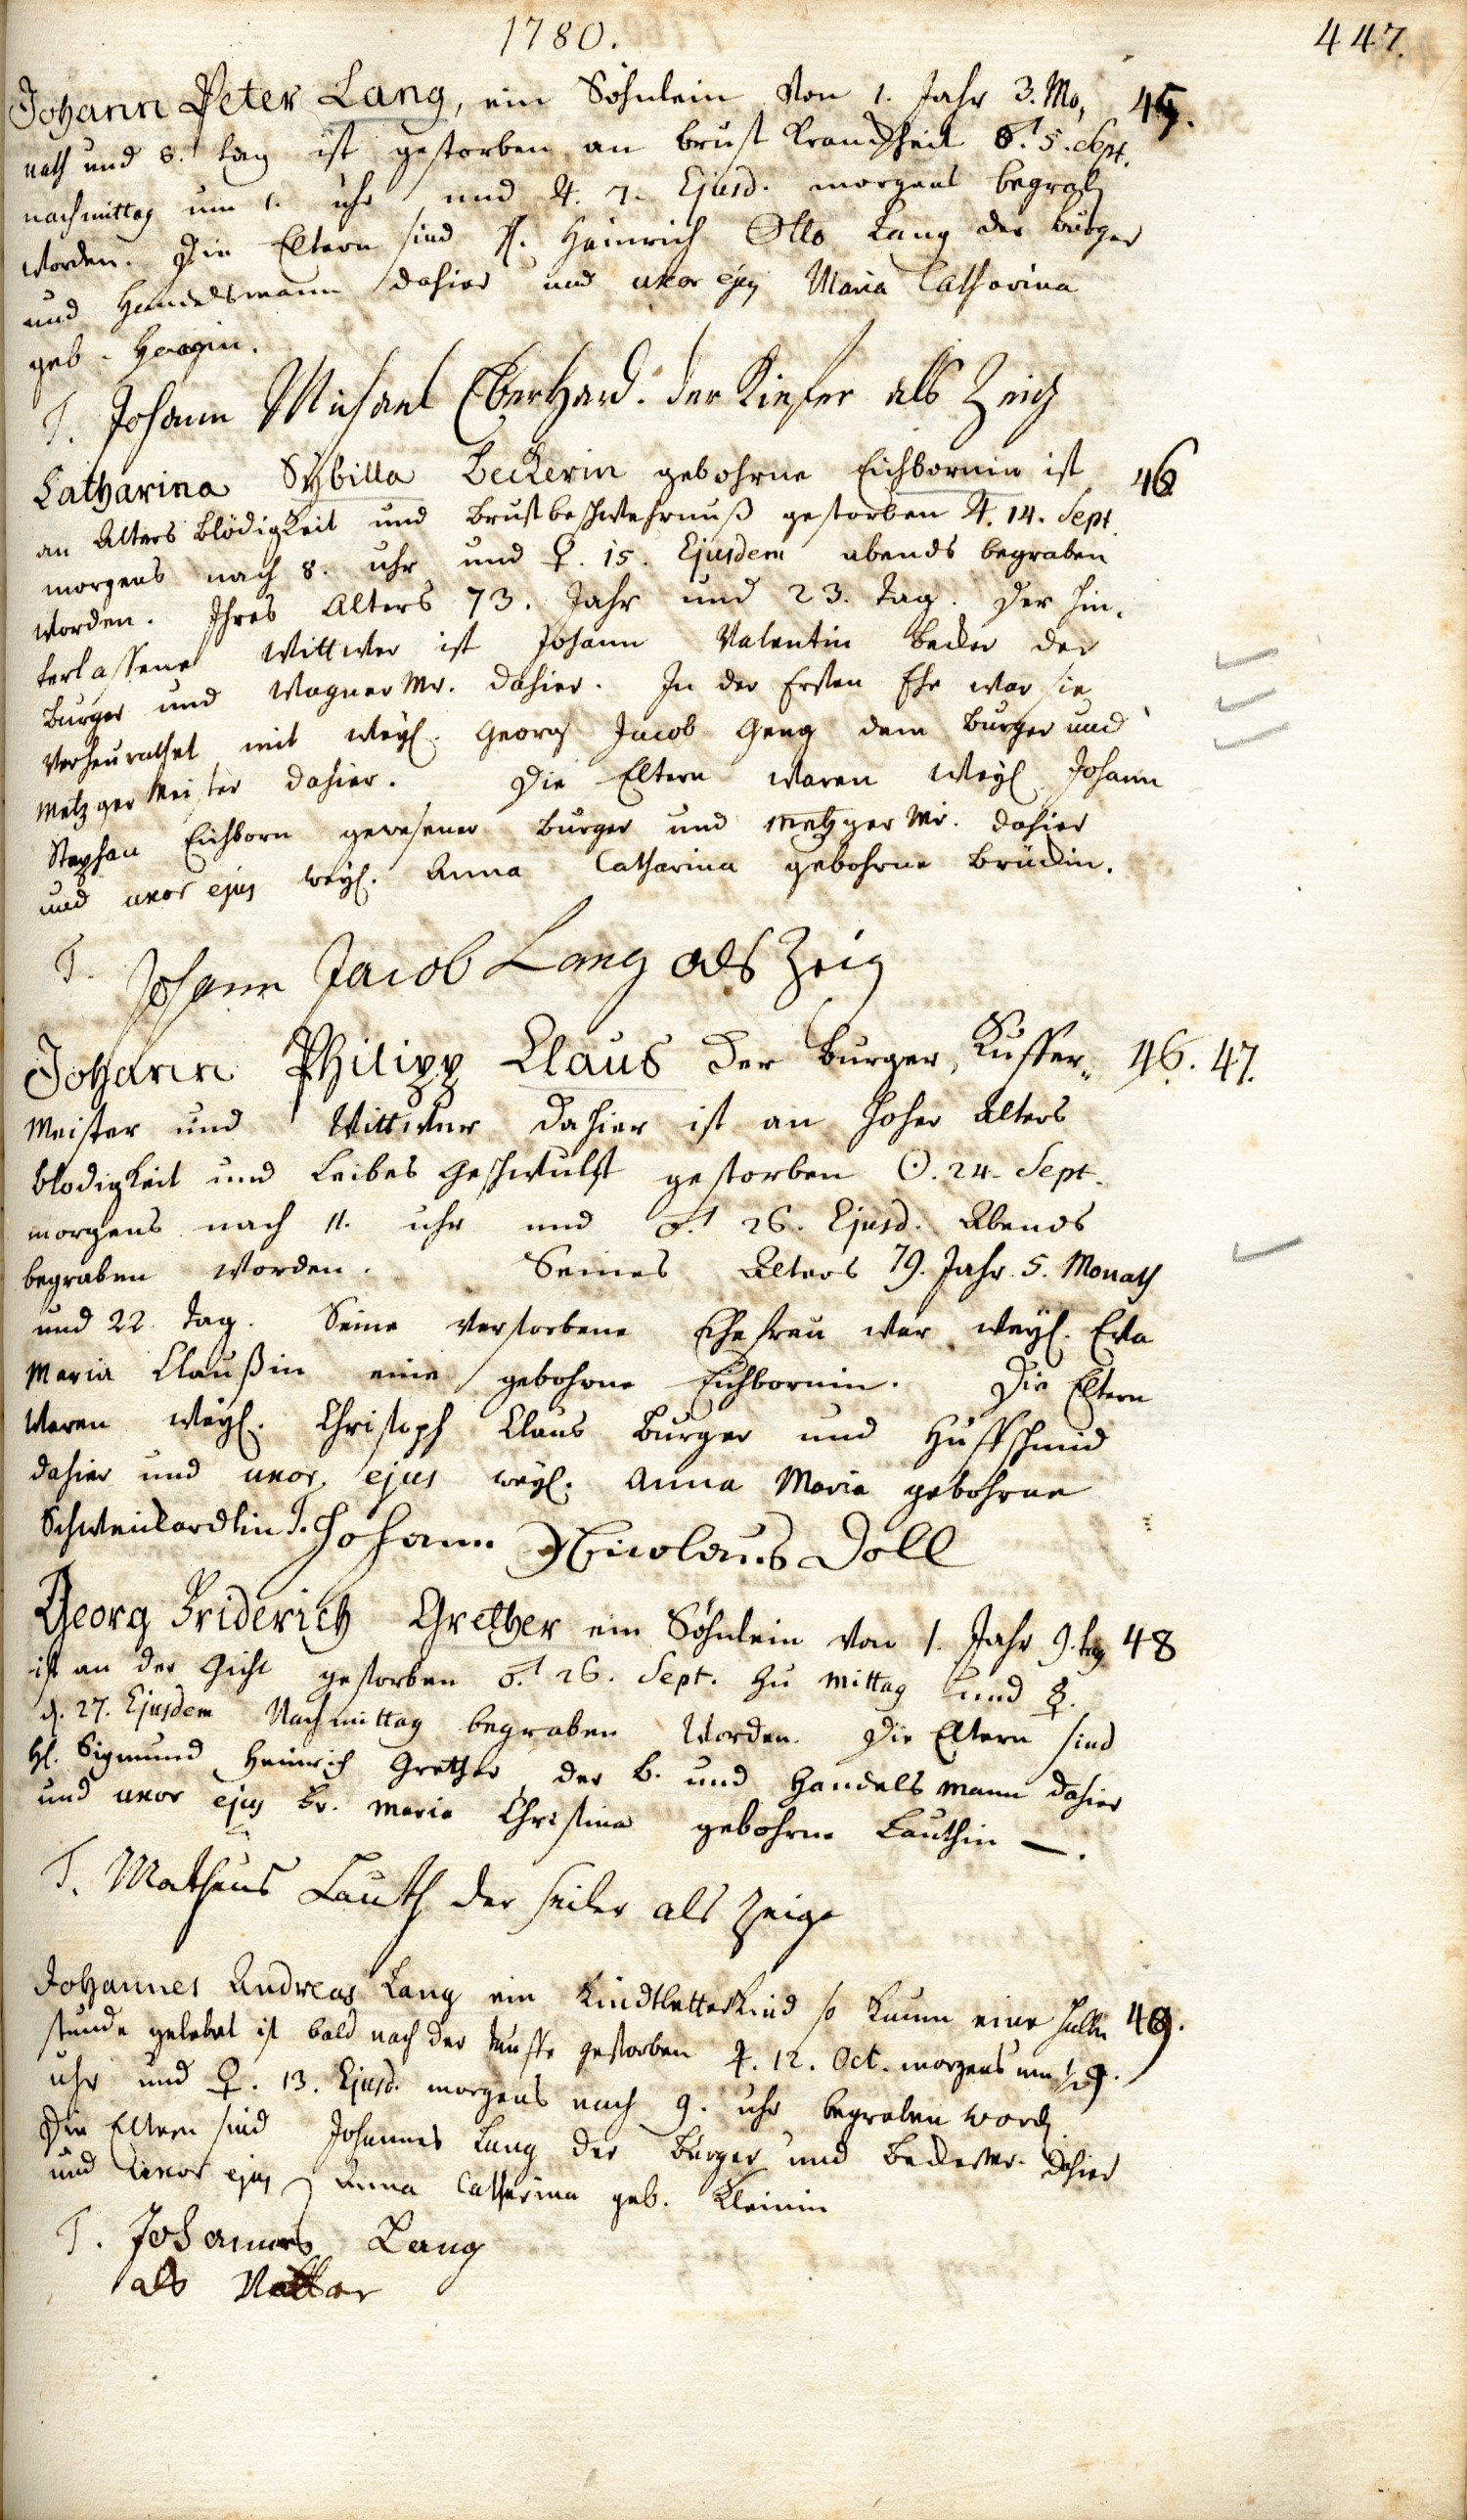 1780.
447.
Johann Peter Lang, ein Söhnlein von 1. Jahr 3. Mo, 45.
nath und 8. tag ist gestorben an brust Kranckheit ♂. 5. Sept.
nachmittag um 1. uhr und ♃. 7. Ejusd. morgens begrab
worden. Die Eltern sind H. Heinrich Otto Lang der burger
und Handelsmann dahier und uxor ejus Maria Catharina
geb.
T. Johann Michael Eberhard. der Kiefer als Zeig
Catharina Sybilla Beckerin gebohrne Eichbornin ist 46
an Alters blödigkeit und brustbeschwehrnuß gestorben ♃. 14. Sept.
morgens nach 8. uhr und ♀. 15. Ejusdem abends begraben
worden. Ihres Alters 73. Jahr und 23. tag. Der hin,
terlassene Wittwer ist Johann Valentin Becker der
burger und Wagner Mr. dahier. In der Ersten Ehe war sie
verheurathet mit weyl. Georg Jacob Geng dem burger und
Metzger Meister dahier. Die Eltern waren weyl. Johann
Stephan Eichborn gewesener burger und Metzger Mr. dahier
und uxor ejus weyl. Anna Catharina gebohrne Brückin.
T. Johann Jacob Lang als Zeig
Johann Philipp Claus der burger, Kuffer„ 46. 47.
Meister und Wittwer dahier ist an hoher Alters
blodigkeit und Leibes Geschwulst gestorben ☉. 24. Sept.
morgens nach 11. uhr und ♂. 26. Ejusd. Abends
begraben worden. Seines Alters 79. Jahr. 5. Monath
und 22 tag. Seine verstorbene Ehefrau war weyl. Eva
Maria Claußin eine gebohrne Eichbornin. Die Eltern
waren weyl. Christoph Claus burger und Huffschmid
dahier und uxor ejus weyl. Anna Maria gebohrne
Schweickardtin T. Johann Nicolaus Doll
Georg Friderich Grether ein Söhnlein von 1. Jahr 9. tag 48
ist an der Gicht gestorben ♂. 26. Sept. zu mittag und ☿.
d. 27. Ejusdem Nachmittag begraben worden. Die Eltern sind
H. Sigmund Heinrich Grether, der b. und Handels mann dahier
und uxor ejus Fr. Maria Christina gebohrne Lauthin —.
T. Matheus Lauth der seiler als Zeige
Johannes Andreas Lang ein Kindtbetterkind so kaum eine halbe 49.
stunde gelebet ist bald nach der tauffe gestorben ♃. 12. Oct. morgens um 1/2 9.
uhr und ♀. 13. Ejusd. morgens nach 9. uhr begraben word
Die Eltern sind Johannes Lang der burger und Beckermr. dahier
und uxor ejus Anna Catharina geb. Kleinin
T. Johannes Lang
als Vatter